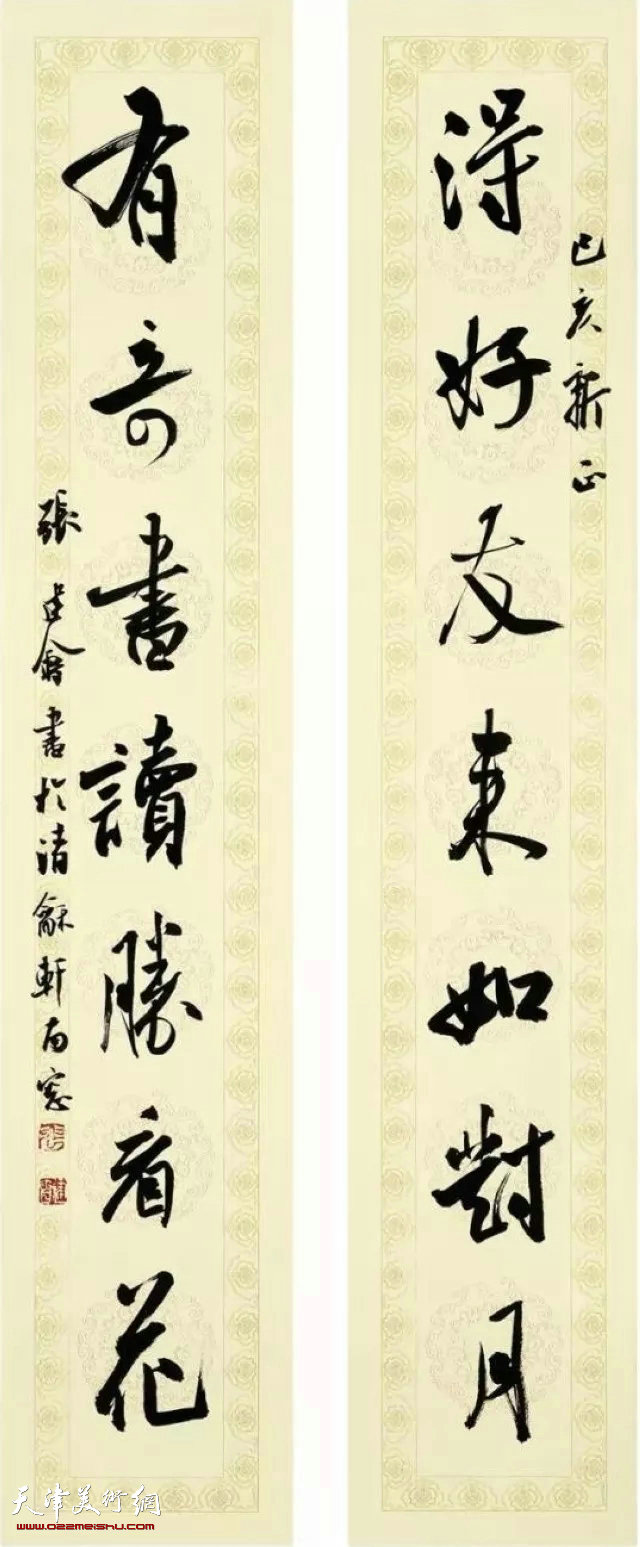 己亥新正
得好友来如對月
有奇書讀勝看花
張建會書於清龢軒南窓
天津美術網
www.022meishu.com